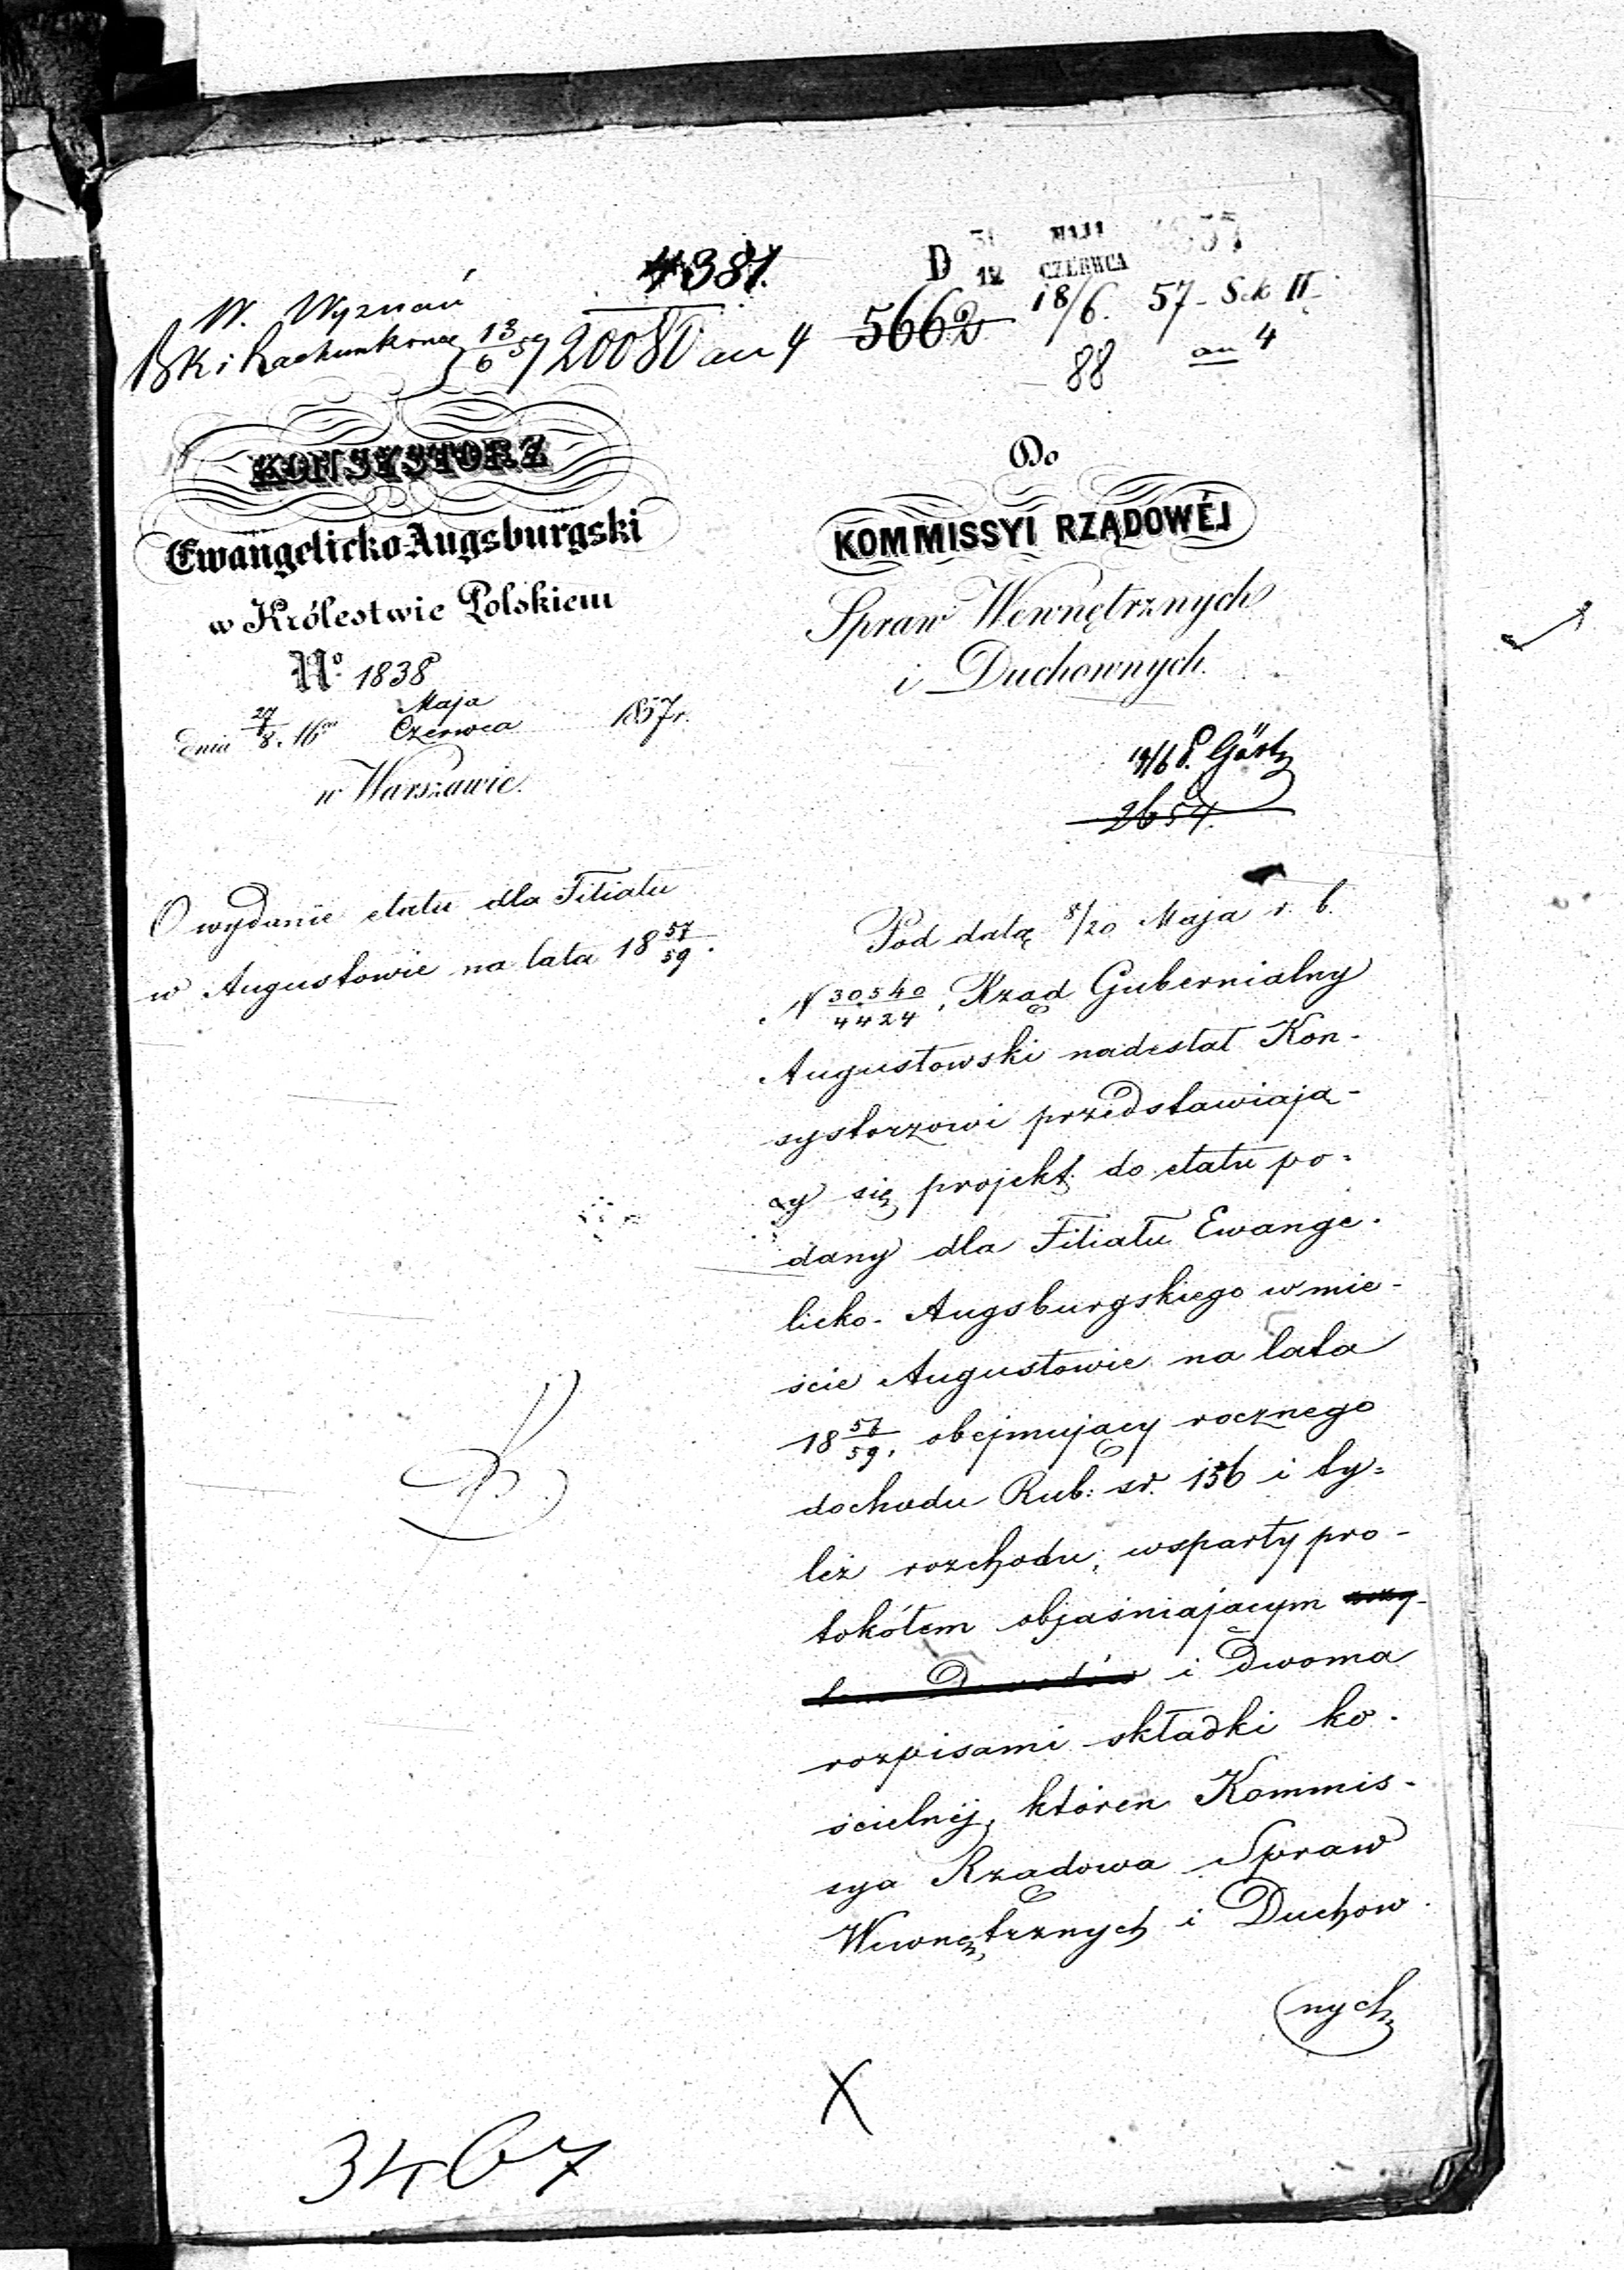 4381.
D 31 MAJA 1857
12 CZERWCA
W. Wyznań
BK i Rachunkowe 13/6 57 20080 au 4
5662 18/6. 57 - Sek II.
88 au 4
KONSYSTORZ
Ewangelicko Augsburgski
w Królestwie Polskiem
No. 1838
dnia 27/8. Maja
Czerwca 1857 r.
w Warszawie.
Do
KOMMISSYI RZĄDOWÉJ
Spraw Wewnętrznych
i Duchownych.
2654.
O wydanie etatu dla Filiału
w Augustowie na lata 18 57/59.
Pod datą 8/20 Maja r. b.
N 30540/4424, Rząd Gubernialny
Augustowski nadesłał Kon-
systorzowi przedstawiają-
cy się projekt do etatu po-
dany dla Filiału Ewange-
licko-Augsburgskiego w mie-
ście Augustowie na lata
18 57/59, obejmujący rocznego
dochodu Rub: sr. 156 i ty-
leż rozchodu, wsparty pro-
tokółem objaśniającym
i dwoma
rozpisami składki ko-
ścielnéj, któren Kommis-
sya Rządowa Spraw
Wewnętrznych i Duchow-
nych
X
3467